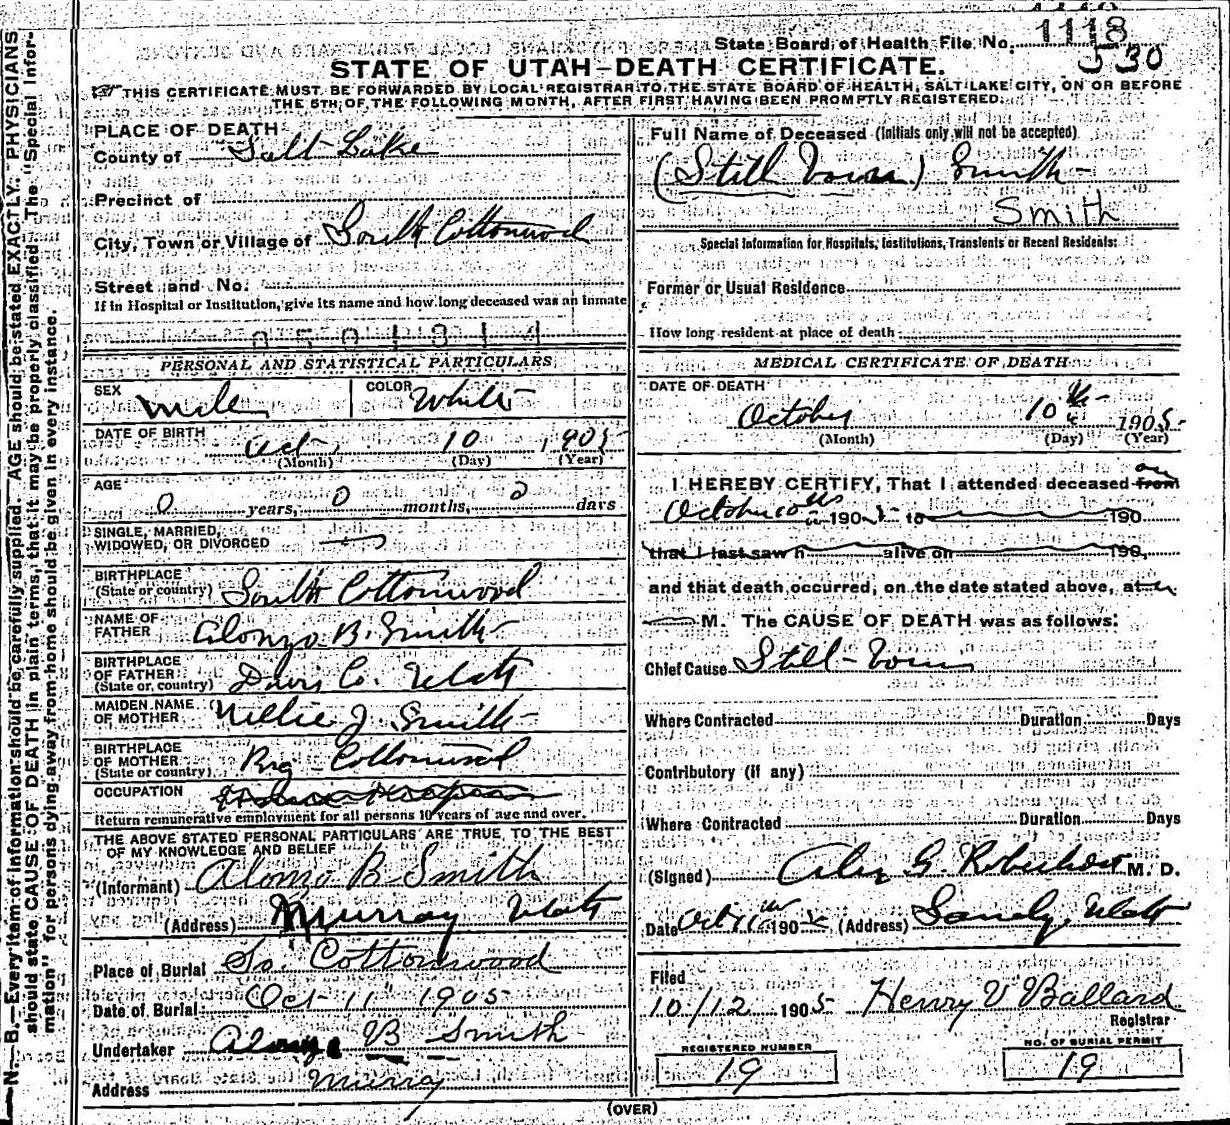 State Board of Health File No. 1118
530
STATE OF UTAH—DEATH CERTIFICATE.
THIS CERTIFICATE MUST BE FORWARDED BY LOCAL REGISTRAR TO THE STATE BOARD OF HEALTH, SALT LAKE CITY, ON OR BEFORE
THE 5TH OF THE FOLLOWING MONTH, AFTER FIRST HAVING BEEN PROMPTLY REGISTERED.
N. B.—Every item of information should be carefully supplied. AGE should be stated EXACTLY. PHYSICIANS
should state CAUSE OF DEATH in plain terms, that it may be properly classified. The "Special Infor-
mation" for persons dying away from home should be given in every instance.
PLACE OF DEATH
County of Salt Lake
Precinct of
City, Town or Village of South Cottonwood
Street and No.
If in Hospital or Institution, give its name and how long deceased was an inmate
0501314
PERSONAL AND STATISTICAL PARTICULARS
SEX male COLOR White
DATE OF BIRTH Oct 10 1905
(Month) (Day) (Year)
AGE
0 years, 0 months, 0 days
SINGLE, MARRIED,
WIDOWED, OR DIVORCED
BIRTHPLACE
(State or country) South Cottonwood
NAME OF
FATHER Alonzo B. Smith
BIRTHPLACE
OF FATHER
(State or country) Davis Co. Utah
MAIDEN NAME
OF MOTHER Nellie J Smith
BIRTHPLACE
OF MOTHER
(State or country) Big Cottonwood
OCCUPATION
Return remunerative employment for all persons 10 years of age and over.
THE ABOVE STATED PERSONAL PARTICULARS ARE TRUE TO THE BEST
OF MY KNOWLEDGE AND BELIEF
(Informant) Alonzo B Smith
(Address) Murray Utah
Place of Burial So. Cottonwood
Date of Burial Oct 11 1905
Undertaker Alonzo B Smith
Address Murray
Full Name of Deceased (Initials only will not be accepted)
(Still Born) Smith
Smith
Special Information for Hospitals, Institutions, Transients or Recent Residents:
Former or Usual Residence
How long resident at place of death
MEDICAL CERTIFICATE OF DEATH
DATE OF DEATH
October 10th 1905
(Month) (Day) (Year)
I HEREBY CERTIFY, That I attended deceased from on
October 10th 1905 to 190
that I last saw h alive on 190,
and that death occurred, on the date stated above, at
M. The CAUSE OF DEATH was as follows:
Chief Cause Still-born
Where Contracted Duration Days
Contributory (if any)
Where Contracted Duration Days
(Signed) G. Robertson M. D.
Date Oct 11th 1905 (Address) Sandy, Utah
Filed
10/12 1905 Henry V Ballard
Registrar
REGISTERED NUMBER
19
NO. OF BURIAL PERMIT
19
(OVER)